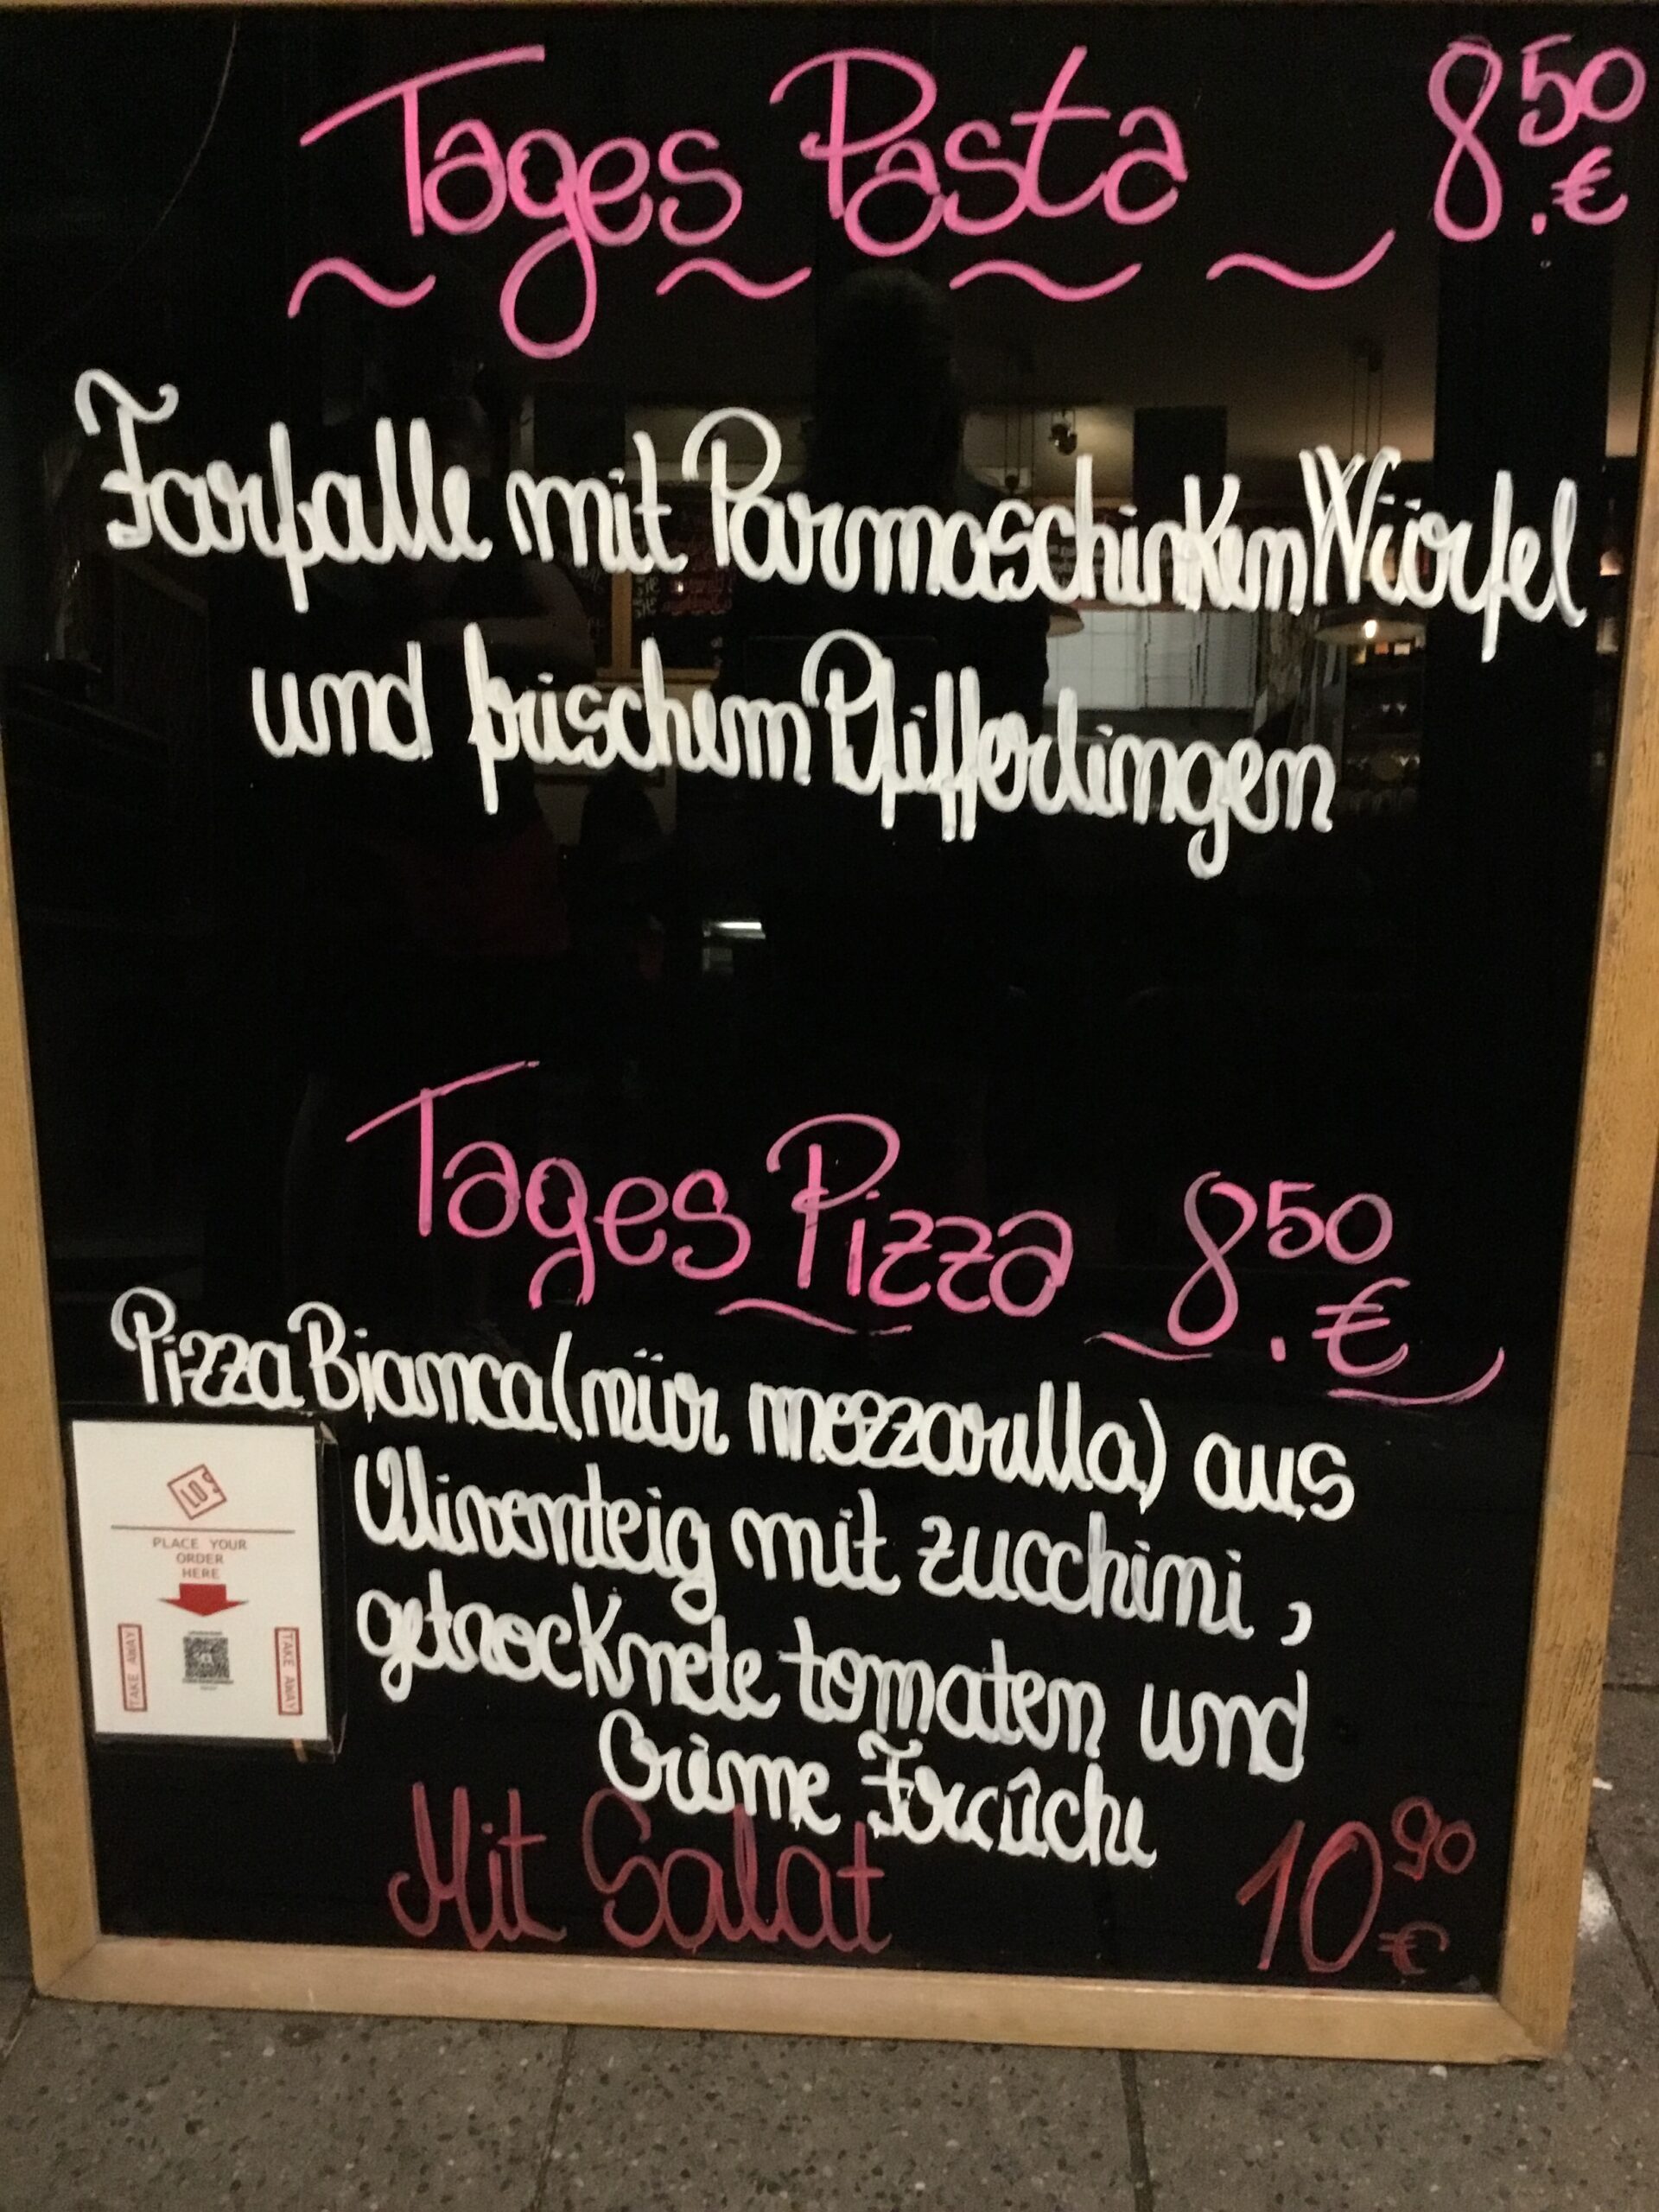 Tages Pasta 8 50 .€
Farfalle mit Parmaschinken Würfel
und frischem Pfifferlingen
Tages Pizza 8 50 .€
Pizza Bianca (nür mozzarella) aus
Oliventeig mit zucchini,
getrocknete tomaten und
Crème
Mit Salat 10 90 €
LO
PLACE YOUR
ORDER
HERE
TAKE AWAY
TAKE AWAY